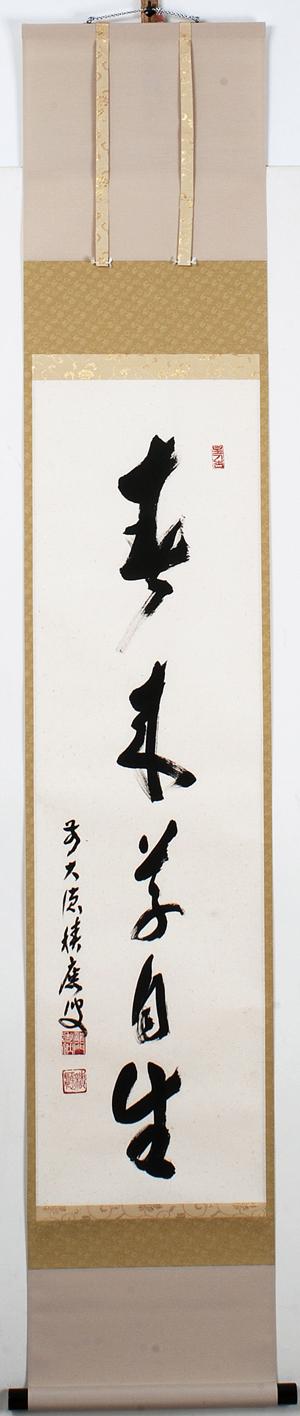 春来草自生
前大徳積應叟